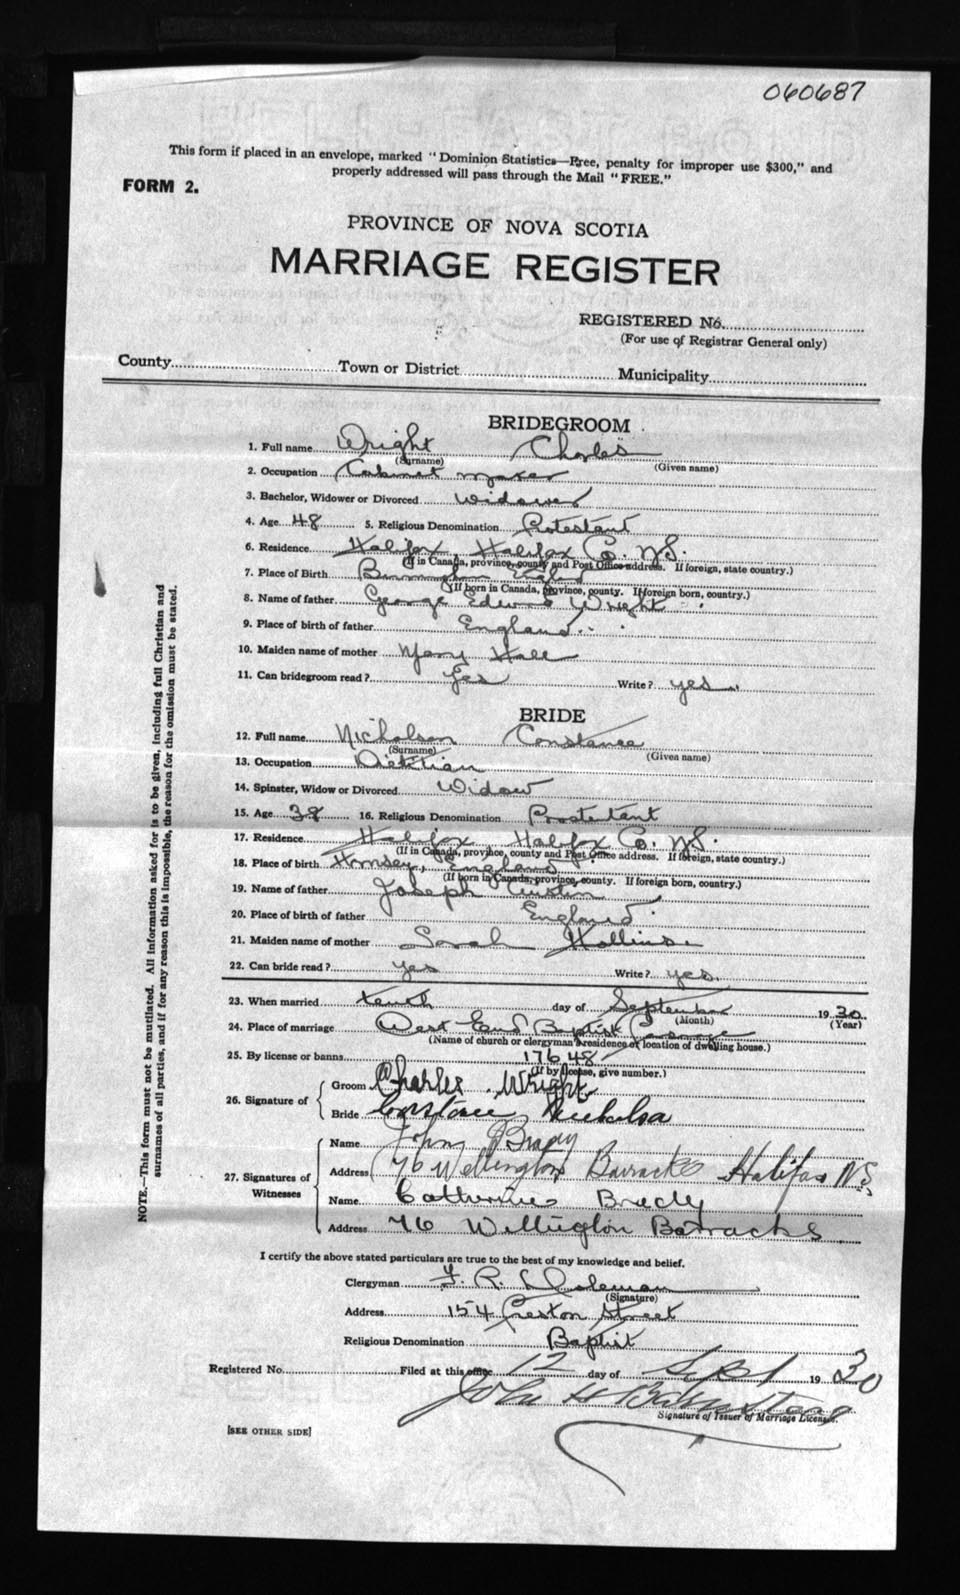 060687
This form if placed in an envelope, marked "Dominion Statistics—Free, penalty for improper use $300," and
properly addressed will pass through the Mail "FREE."
FORM 2.
PROVINCE OF NOVA SCOTIA
MARRIAGE REGISTER
REGISTERED No.
(For use of Registrar General only)
County Town or District Municipality
BRIDEGROOM
1. Full name Wright Charles
(Surname) (Given name)
2. Occupation Cabinet maker
3. Bachelor, Widower or Divorced Widower
4. Age 48 5. Religious Denomination Protestant
6. Residence Halifax, Halifax Co. N.S.
(If in Canada, province, county and Post Office address. If foreign, state country.)
7. Place of Birth Birmingham England
(If born in Canada, province, county. If foreign born, country.)
8. Name of father George Edward Wright
9. Place of birth of father England
10. Maiden name of mother Mary Hall
11. Can bridegroom read? Yes Write? yes.
BRIDE
12. Full name Nicholson Constance
(Surname) (Given name)
13. Occupation Dietitian
14. Spinster, Widow or Divorced Widow
15. Age 38 16. Religious Denomination Prostestant
17. Residence Halifax Halifax Co. N.S.
(If in Canada, province, county and Post Office address. If foreign, state country.)
18. Place of birth Hornsey, England
(If born in Canada, province, county. If foreign born, country.)
19. Name of father Joseph Austin
20. Place of birth of father England
21. Maiden name of mother Sarah Hollins
22. Can bride read? yes Write? yes.
23. When married tenth day of September 1930
(Month) (Year)
24. Place of marriage West End Baptist Parsonage
(Name of church or clergyman's residence or location of dwelling house.)
25. By license or banns 17648
(If by license, give number.)
26. Signature of
Groom Charles Wright
Bride Constance Nicholson
27. Signatures of Witnesses
Name John Brady
Address 76 Wellington Barracks Halifax N.S.
Name Catherine Brady
Address 76 Wellington Barracks
I certify the above stated particulars are true to the best of my knowledge and belief.
Clergyman F. R.
(Signature)
Address 154 Preston Street
Religious Denomination Baptist
Registered No. Filed at this office 12 day of Sept 1930
John H
Signature of Issuer of Marriage License.
[SEE OTHER SIDE]
NOTE.—This form must not be mutilated. All information asked for is to be given, including full Christian and
surnames of all parties, and if for any reason this is impossible, the reason for the omission must be stated.